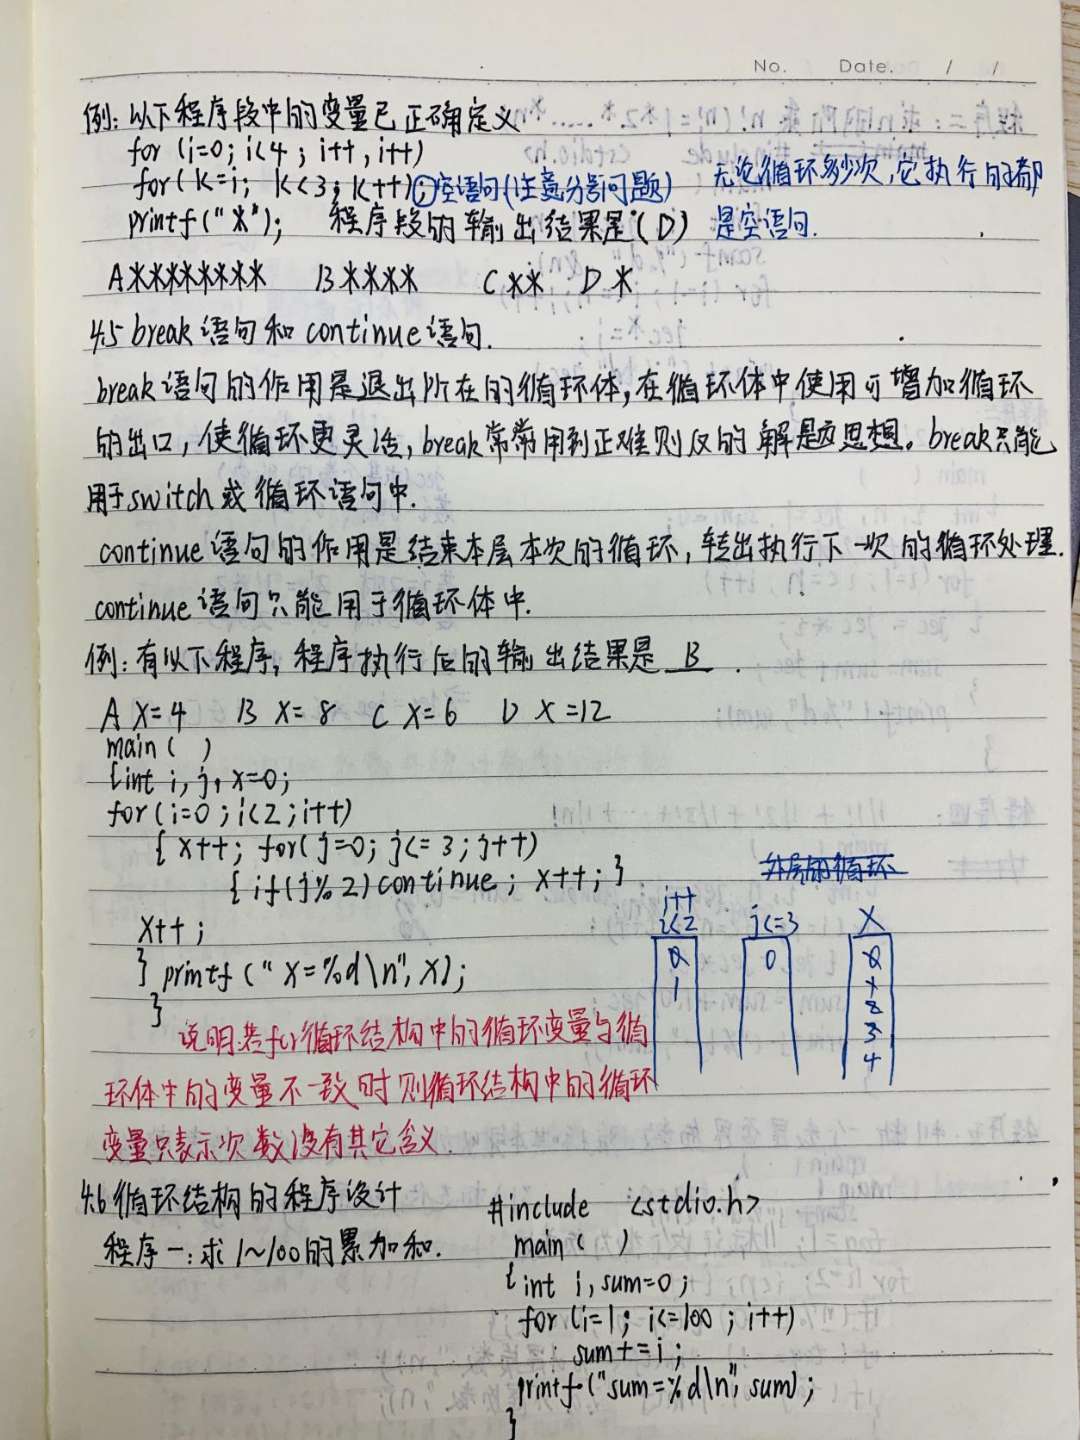 No. Date. / /
例:以下程序段中的变量已正确定义
for (i=0; i<4; i++, i++)
for(k=i; k<3; k++); 空语句(注意分号问题) 无论循环多少次,它执行的都
printf("*"); 程序段的输出结果是(D) 是空语句.
A******** B**** C** D*
4.5 break语句和continue语句.
break语句的作用是退出所在的循环体,在循环体中使用可增加循环
的出口,使循环更灵活,break常常用到正难则反的解题思想。break只能
用于switch或循环语句中.
continue语句的作用是结束本层本次的循环,转出执行下一次的循环处理.
continue语句只能用于循环体中.
例:有以下程序,程序执行后的输出结果是 B .
A X=4 B X=8 C X=6 D X=12
main( )
{int i,j,x=0;
for(i=0;i<2;i++)
{ x++; for(j=0;j<=3;j++)
{ if(j%2)continue; x++;}
外层的循环
x++;
i++
i<2 j<=3 X
} printf("X=%d\n",x);
}
0 0 0
1 1
2
3
4
说明:若for循环结构中的循环变量与循
环体中的变量不一致时则循环结构中的循环
变量只表示次数没有其它含义.
4.6循环结构的程序设计
程序一:求1~100的累加和.
#include <stdio.h>
main( )
{int i,sum=0;
for(i=1; i<=100; i++)
sum+=i;
printf("sum=%d\n",sum);
}